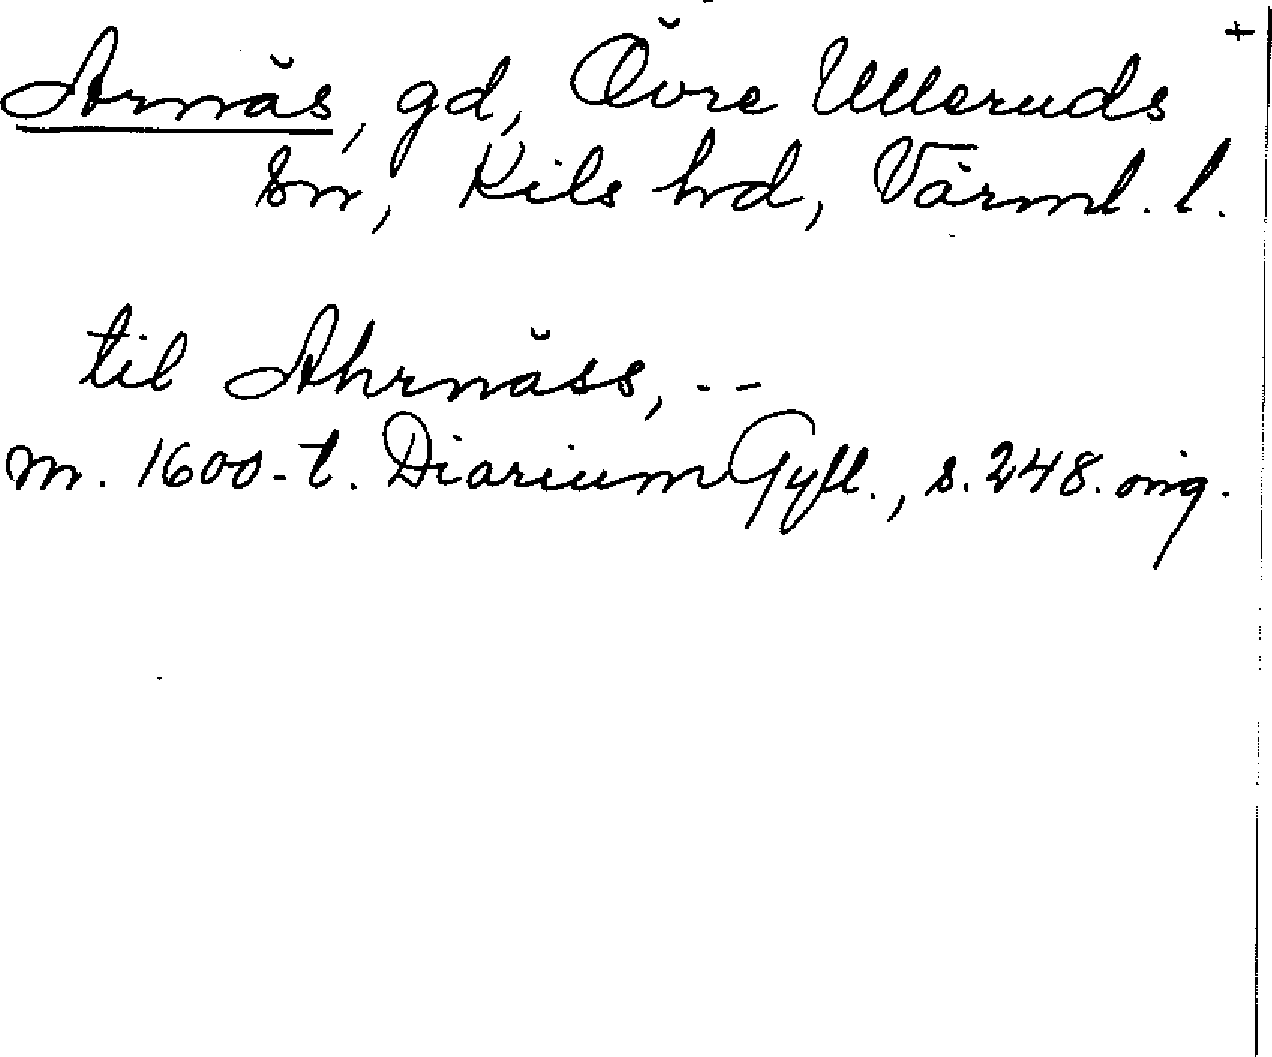 Arnäs, gd, Övre Ulleruds +
sn, Kils hd, Värml. l.
til Ahrnäss, --
m. 1600-t. Diarium Gyll., s. 248. orig.